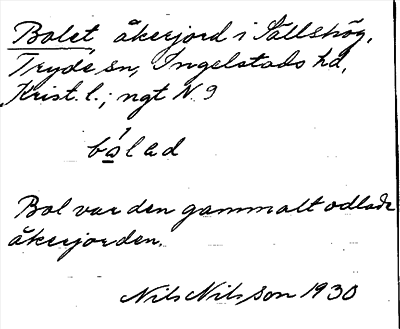 Bolet, åkerjord i Sällshög,
Tryde sn, Ingelstads hd,
Krist. l.; ngt N. 9
bólad
Bol var den gammalt odlade
åkerjorden.
Nils Nilsson 1930